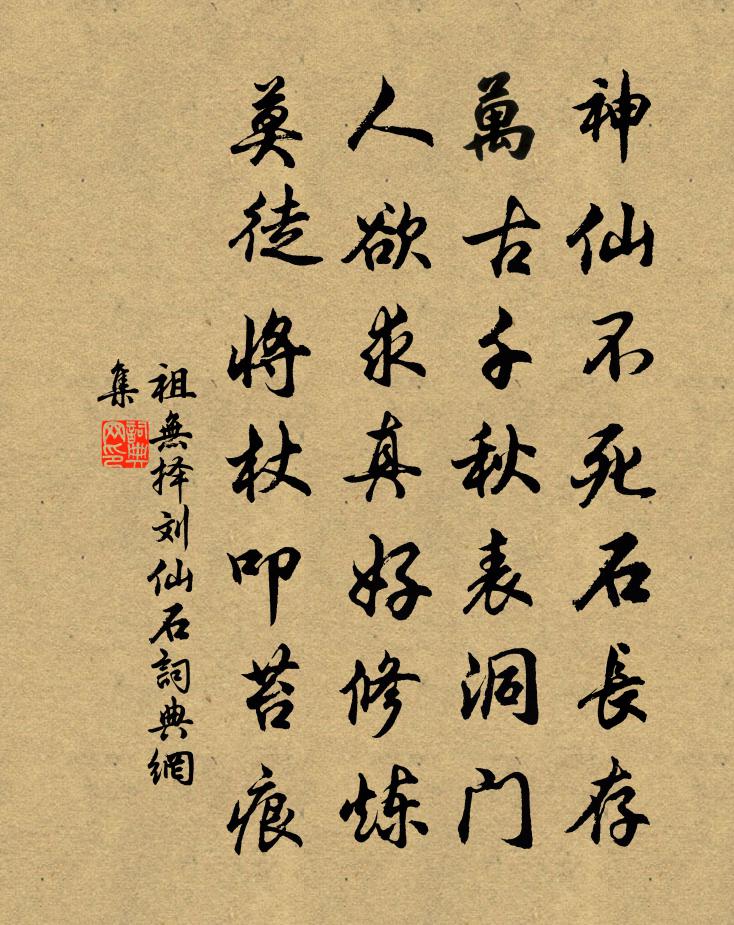 神仙不死石長存
萬古千秋表洞門
人欲求真好修炼
莫徒将杖叩苔痕
祖無择刘仙石詞典網
集
詞典
网印